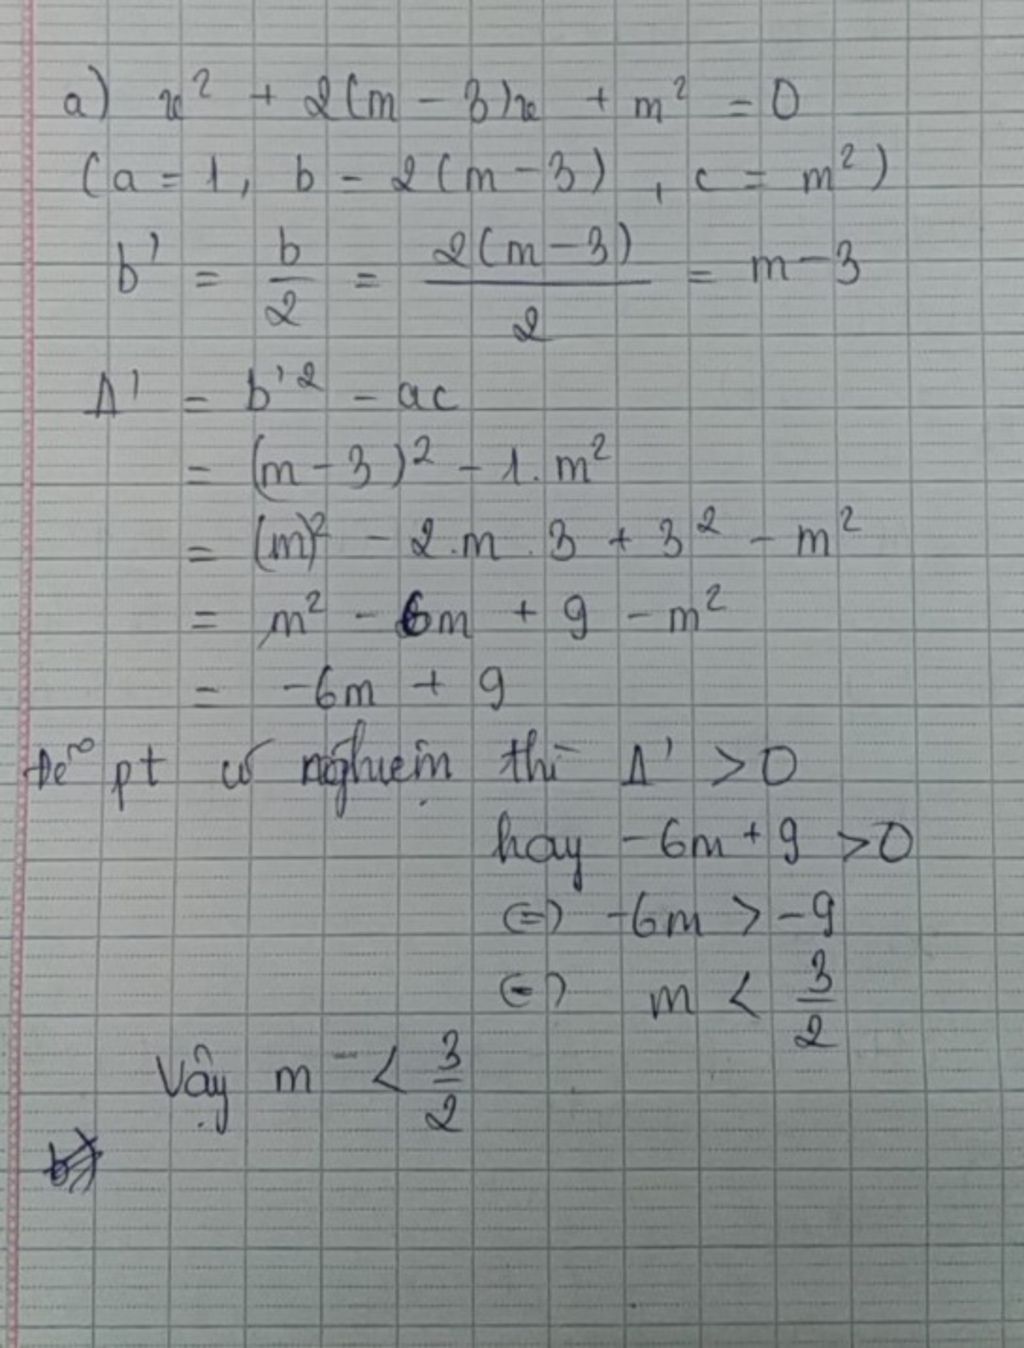 a) x² + 2(m - 3)x + m² = 0
(a = 1, b - 2(m - 3), c = m²)
b' = b/2 = 2(m - 3)/2 = m - 3
Δ' = b'² - ac
= (m - 3)² - 1.m²
= (m)² - 2.m.3 + 3² - m²
= m² - 6m + 9 - m²
= -6m + 9
Để pt có nghiệm thì Δ' > 0
hay -6m + 9 > 0
⇔ -6m > -9
⇔ m < 3/2
Vậy m < 3/2